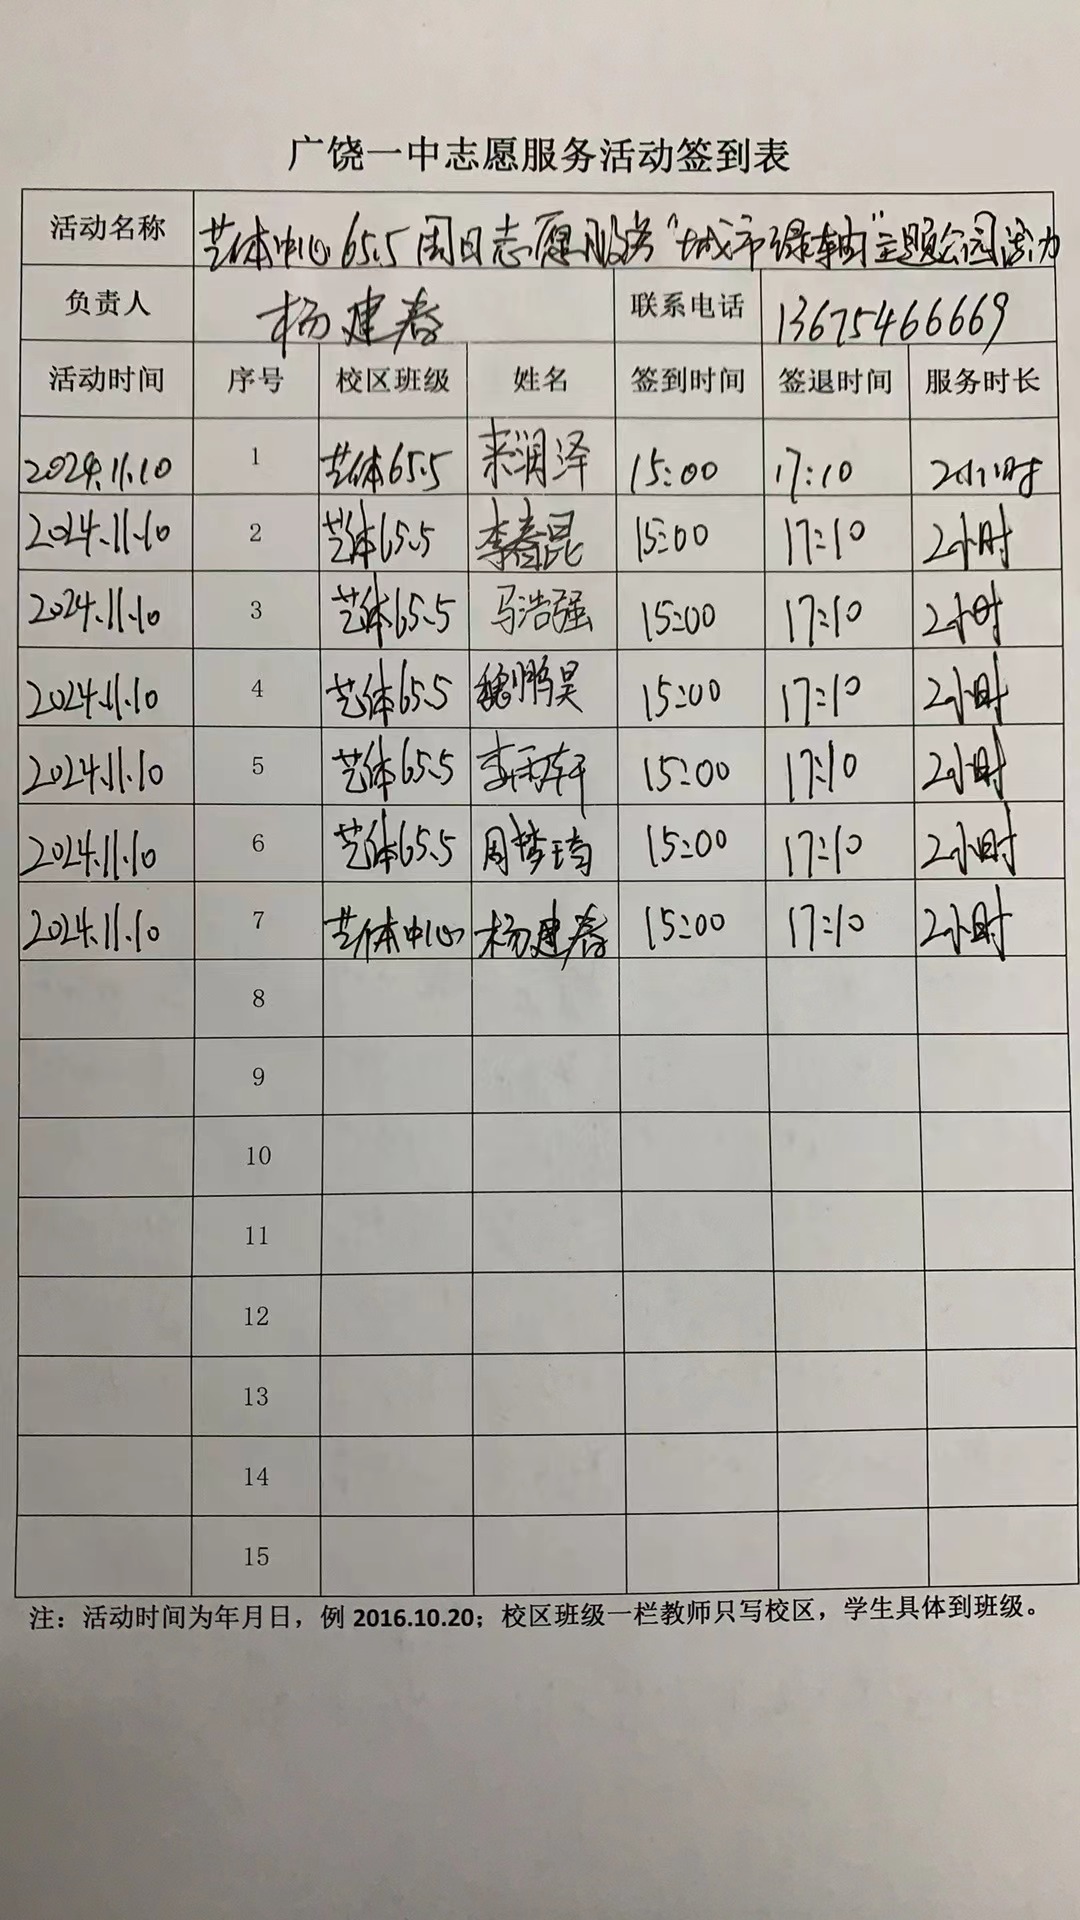 广饶一中志愿服务活动签到表
活动名称 艺体中心65.5周日志愿服务“城市绿轴”主题公园活动
负责人 杨建春 联系电话 13675466669
活动时间 序号 校区班级 姓名 签到时间 签退时间 服务时长
2024.11.10 1 艺体65.5 来润泽 15:00 17:10 2小时
2024.11.10 2 艺体65.5 李春昆 15:00 17:10 2小时
2024.11.10 3 艺体65.5 马浩强 15:00 17:10 2小时
2024.11.10 4 艺体65.5 魏鹏昊 15:00 17:10 2小时
2024.11.10 5 艺体65.5 李雨轩 15:00 17:10 2小时
2024.11.10 6 艺体65.5 周梦琦 15:00 17:10 2小时
2024.11.10 7 艺体中心 杨建春 15:00 17:10 2小时
8
9
10
11
12
13
14
15
注：活动时间为年月日，例 2016.10.20；校区班级一栏教师只写校区，学生具体到班级。